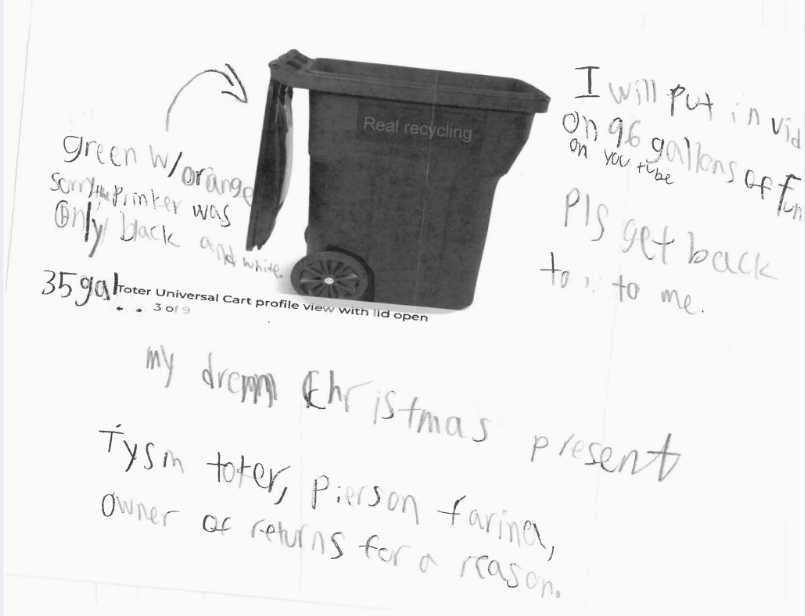 green w/orange
sorry the printer was
only black and white.
35 gal
Real recycling
Toter Universal Cart profile view with lid open
3 of 9
I will put in vid
on 96 gallons of fun
on you tube
Pls get back
to to me.
my dream Christmas present
Tysm toter, Pierson farina,
owner of returns for a reason.